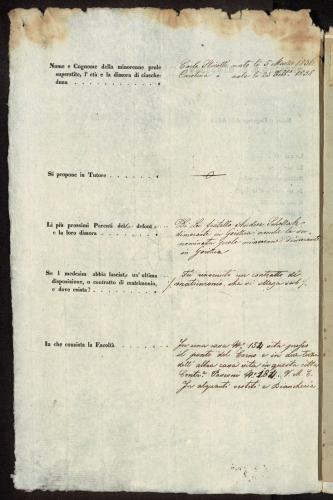 Nome e Cognome della minorenne prole
superstite, l' età e la dimora di ciasche-
duna
Carlo nato li 5 Marzo 1836
Carolina " nata li 25 1838
Si propone in Tutore
Li più prossimi Parenti del defont
e la loro dimora
Di Lei fratello Andrea
dimorante in Gorizia
nominata prole minorenne dimorante
in Gorizia
Se i medesimi abbia lasciato un' ultima
disposizione, o contratto di matrimonio,
e dove esista?
Fu rinvenuto un contratto di
matrimonio, che si allega sub
In che consista la Facoltà
In una casa N.º 154 sita presso
il ponte del Corno e in due terzi
dell' altra casa sita in questa città
Contr.ª N.º 184.
In alquanti vestiti e Biancheria